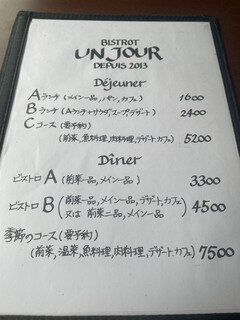 BISTROT
UN JOUR
DEPUIS 2013
Déjeuner
Aランチ(メイン一品,パン,カフェ) 1600
Bランチ(Aランチ+サラダ,スープ,デザート) 2400
Cコース(要予約)
(前菜,魚料理,肉料理,デザート,カフェ) 5200
Dîner
ビストロA(前菜一品,メイン一品) 3300
ビストロB(前菜一品,メイン一品,デザート,カフェ) 4500
又は 前菜二品,メイン一品
季節のコース(要予約)
(前菜,温菜,魚料理,肉料理,デザート,カフェ) 7500